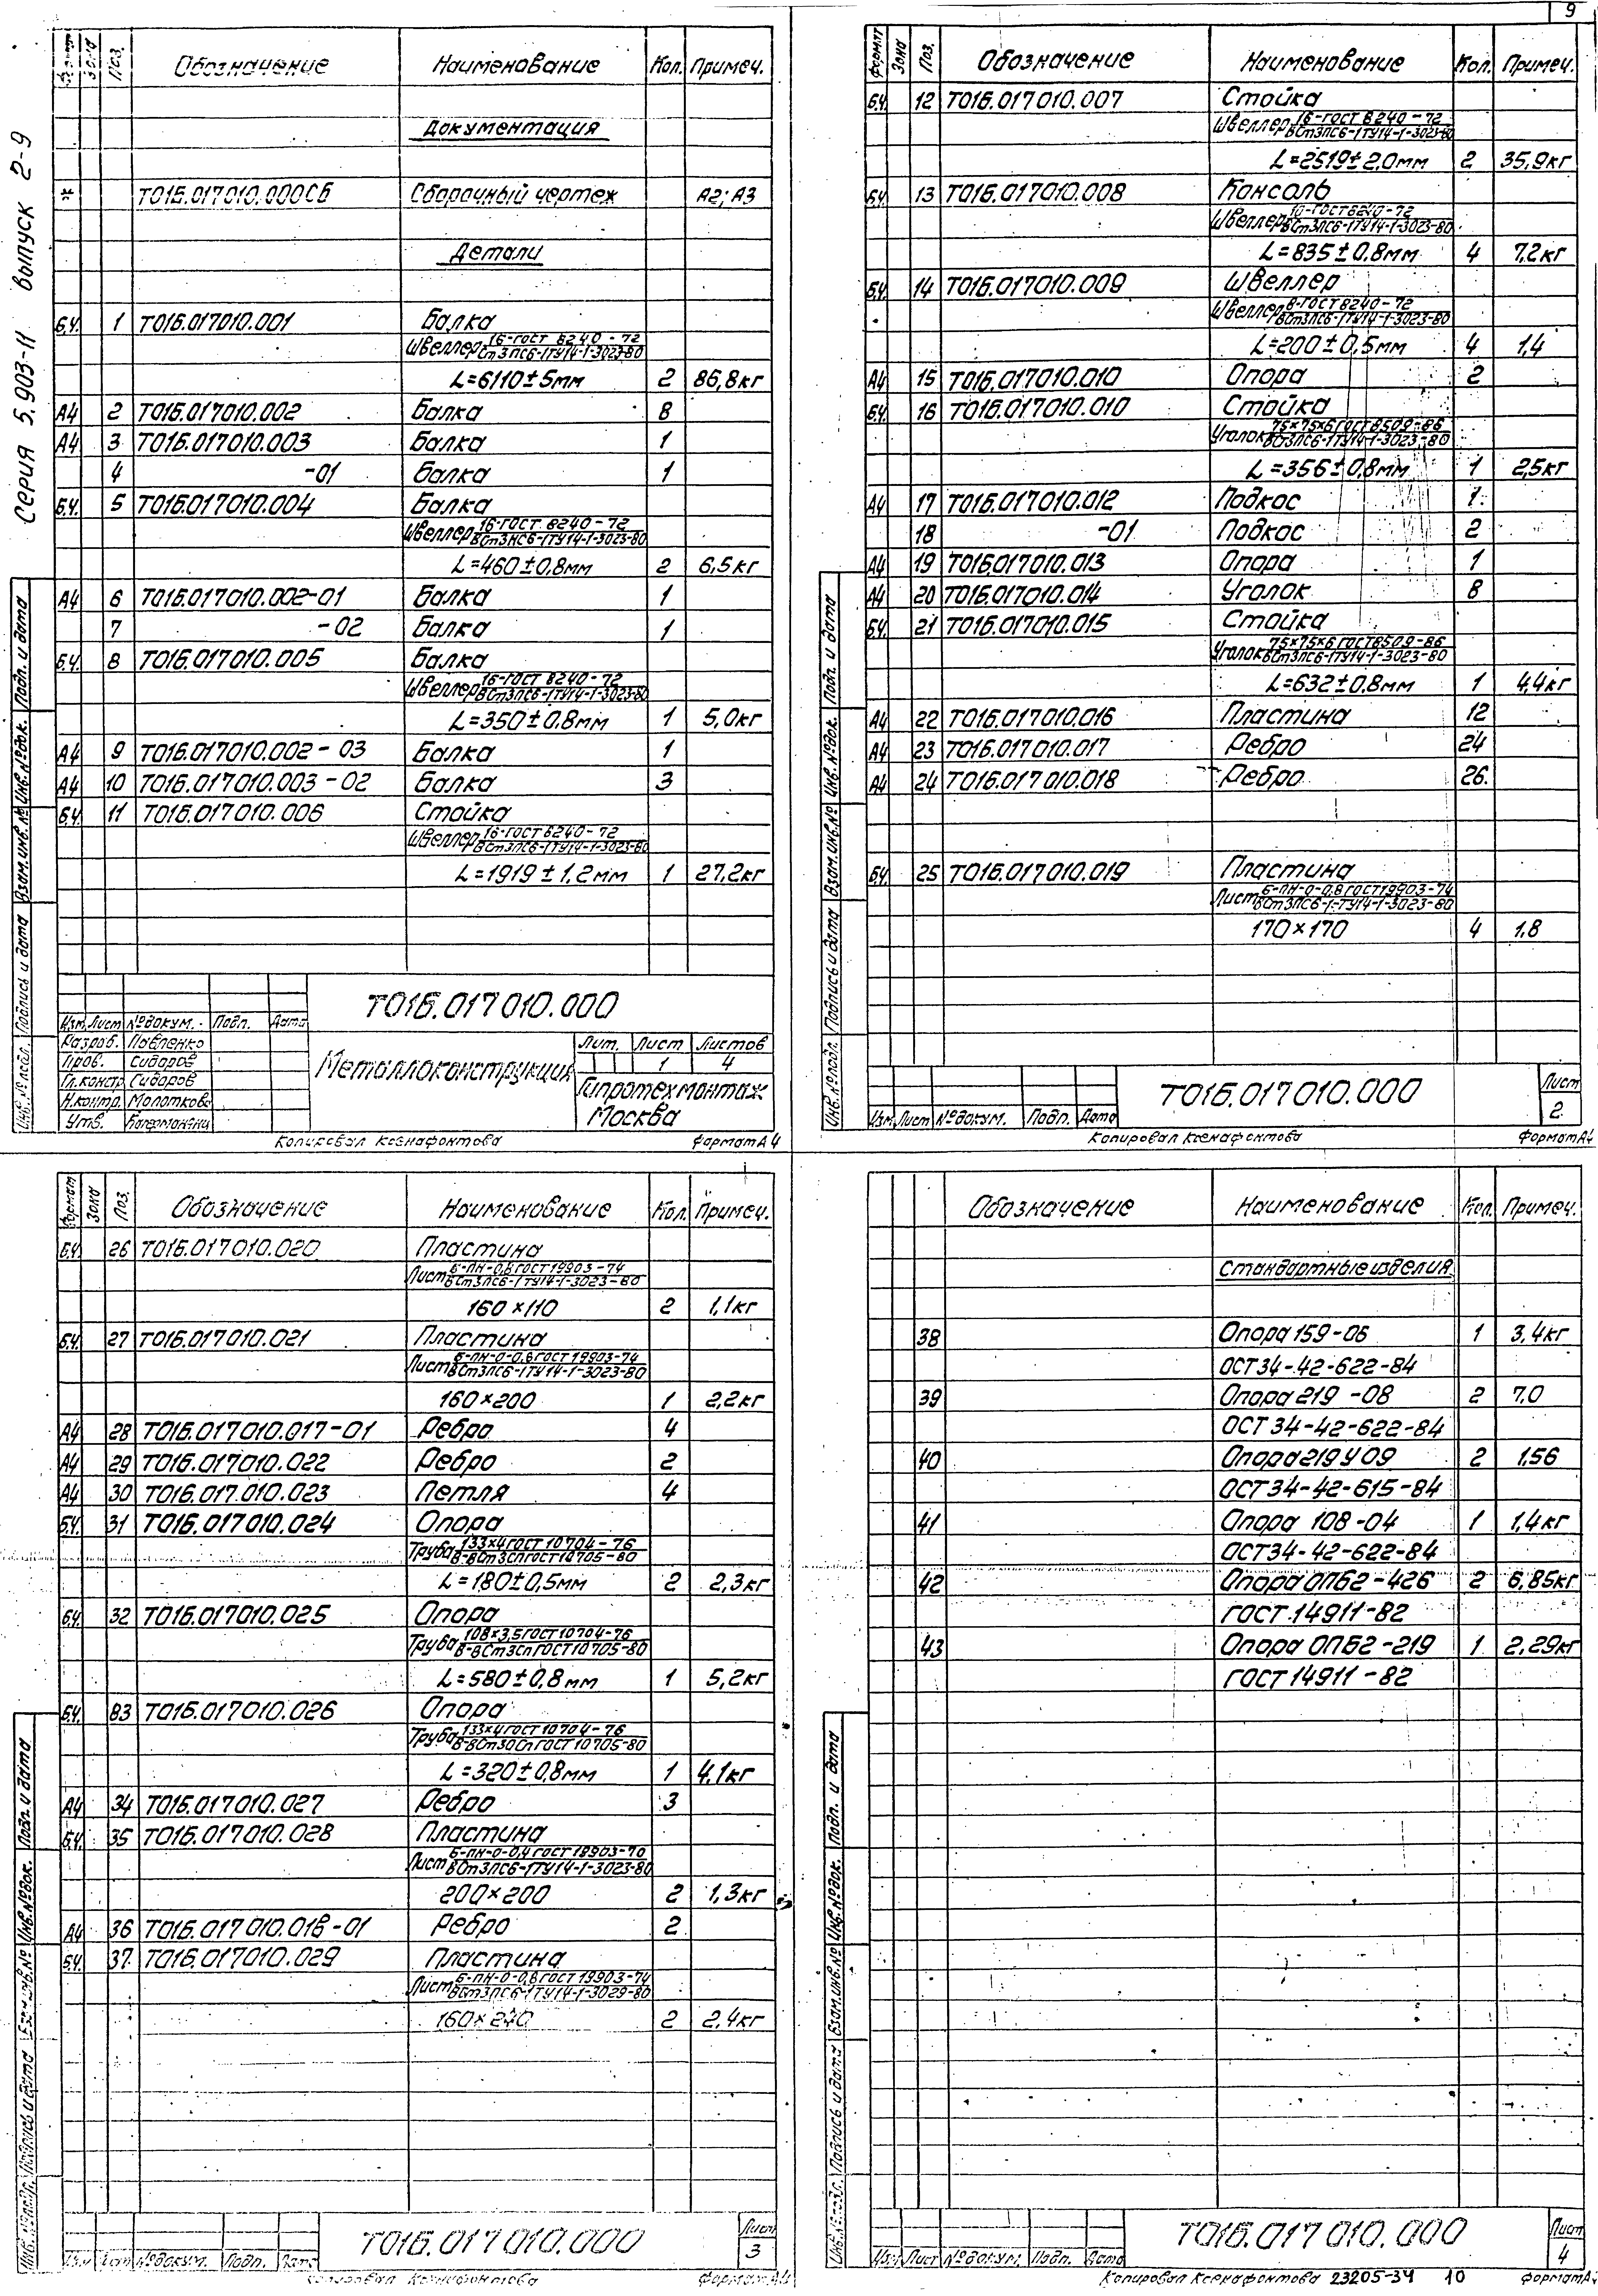 9
Серия 5.903-11 выпуск 2-9
Формат Зона Поз. Обозначение Наименование Кол. Примеч.
Документация
* Т01Б.017010.000СБ Сборочный чертеж А2; А3
Детали
Б.Ч. 1 Т01Б.017010.001 Балка
Швеллер 16-ГОСТ 8240-72
ВСт3ПС6-1ТУ14-1-3023-80
L=6110±5мм 2 86,8кг
А4 2 Т01Б.017010.002 Балка 8
А4 3 Т01Б.017010.003 Балка 1
4 -01 Балка 1
Б.Ч. 5 Т01Б.017010.004 Балка
Швеллер 16-ГОСТ 8240-72
ВСт3ПС6-1ТУ14-1-3023-80
L=460±0,8мм 2 6,5кг
А4 6 Т01Б.017010.002-01 Балка 1
7 -02 Балка 1
Б.Ч. 8 Т01Б.017010.005 Балка
Швеллер 16-ГОСТ 8240-72
ВСт3ПС6-1ТУ14-1-3023-80
L=350±0,8мм 1 5,0кг
А4 9 Т01Б.017010.002-03 Балка 1
А4 10 Т01Б.017010.003-02 Балка 3
Б.Ч. 11 Т01Б.017010.006 Стойка
Швеллер 16-ГОСТ 8240-72
ВСт3ПС6-1ТУ14-1-3023-80
L=1919±1,2мм 1 27,2кг
Инв.№подл. Подпись и дата Взам.инв.№ Инв.№док. Подп. и дата
Т01Б.017010.000
Изм. Лист №докум. Подп. Дата
Разраб. Павленко
Пров. Сидоров
Гл.констр. Сидоров
Н.контр. Молотков
Утв.
Металлоконструкция
Лит. Лист Листов
1 4
Гипротехмонтаж
Москва
Копировал Ксенафонтова Формат А4
Формат Зона Поз. Обозначение Наименование Кол. Примеч.
Б.Ч. 12 Т01Б.017010.007 Стойка
Швеллер 16-ГОСТ 8240-72
ВСт3ПС6-1ТУ14-1-3023-80
L=2519±2,0мм 2 35,9кг
Б.Ч. 13 Т01Б.017010.008 Консоль
Швеллер 10-ГОСТ 8240-72
ВСт3ПС6-1ТУ14-1-3023-80
L=835±0,8мм 4 7,2кг
Б.Ч. 14 Т01Б.017010.009 Швеллер
Швеллер 8-ГОСТ 8240-72
ВСт3ПС6-1ТУ14-1-3023-80
L=200±0,5мм 4 1,4
А4 15 Т01Б.017010.010 Опора 2
Б.Ч. 16 Т01Б.017010.010 Стойка
Уголок 75×75×6 ГОСТ 8509-86
ВСт3ПС6-1ТУ14-1-3023-80
L=356±0,8мм 1 2,5кг
А4 17 Т01Б.017010.012 Подкос 1
18 -01 Подкос 2
А4 19 Т01Б.017010.013 Опора 1
А4 20 Т01Б.017010.014 Уголок 8
Б.Ч. 21 Т01Б.017010.015 Стойка
Уголок 75×75×6 ГОСТ 8509-86
ВСт3ПС6-1ТУ14-1-3023-80
L=632±0,8мм 1 4,4кг
А4 22 Т01Б.017010.016 Пластина 12
А4 23 Т01Б.017010.017 Ребро 24
А4 24 Т01Б.017010.018 Ребро 26
Б.Ч. 25 Т01Б.017010.019 Пластина
Лист 6-ПН-0-0,8 ГОСТ 19903-74
ВСт3ПС6-1-ТУ14-1-3023-80
170×170 4 1,8
Инв.№подл. Подпись и дата Взам.инв.№ Инв.№док. Подп. и дата
Изм. Лист №докум. Подп. Дата
Т01Б.017010.000
Лист
2
Копировал Ксенафонтова Формат А4
Формат Зона Поз. Обозначение Наименование Кол. Примеч.
Б.Ч. 26 Т01Б.017010.020 Пластина
Лист 6-ПН-0,8 ГОСТ 19903-74
ВСт3ПС6-1ТУ14-1-3023-80
160×110 2 1,1кг
Б.Ч. 27 Т01Б.017010.021 Пластина
Лист 6-ПН-0-0,8 ГОСТ 19903-74
ВСт3ПС6-1ТУ14-1-3023-80
160×200 1 2,2кг
А4 28 Т01Б.017010.017-01 Ребро 4
А4 29 Т01Б.017010.022 Ребро 2
А4 30 Т01Б.017.010.023 Петля 4
Б.Ч. 31 Т01Б.017010.024 Опора
Труба 133×4 ГОСТ 10704-76
В-ВСт3сп ГОСТ 10705-80
L=180±0,5мм 2 2,3кг
Б.Ч. 32 Т01Б.017010.025 Опора
Труба 108×3,5 ГОСТ 10704-76
В-ВСт3Сп ГОСТ 10705-80
L=580±0,8мм 1 5,2кг
Б.Ч. 83 Т01Б.017010.026 Опора
Труба 133×4 ГОСТ 10704-76
В-ВСт3Сп ГОСТ 10705-80
L=320±0,8мм 1 4,1кг
А4 34 Т01Б.017010.027 Ребро 3
Б.Ч. 35 Т01Б.017010.028 Пластина
Лист 6-ПН-0-0,4 ГОСТ 19903-70
ВСт3ПС6-1ТУ14-1-3023-80
200×200 2 1,3кг
А4 36 Т01Б.017010.018-01 Ребро 2
Б.Ч. 37 Т01Б.017010.029 Пластина
Лист 6-ПН-0-0,8 ГОСТ 19903-74
ВСт3ПС6-1ТУ14-1-3029-80
160×240 2 2,4кг
Подпись и дата Взам.инв.№ Инв.№док. Подп. и дата
Изм. Лист №докум. Подп. Дата
Т01Б.017010.000
Лист
3
Копировал Ксенафонтова Формат А4
Обозначение Наименование Кол. Примеч.
Стандартные изделия
38 Опора 159-06 1 3,4кг
ОСТ34-42-622-84
39 Опора 219-08 2 7,0
ОСТ 34-42-622-84
40 Опора 219 У 09 2 1,56
ОСТ 34-42-615-84
41 Опора 108-04 1 1,4кг
ОСТ34-42-622-84
42 Опора ОПБ2-426 2 6,85кг
ГОСТ 14911-82
43 Опора ОПБ2-219 1 2,29кг
ГОСТ 14911-82
Инв.№подл. Подпись и дата Взам.инв.№ Инв.№док. Подп. и дата
Изм. Лист №докум. Подп. Дата
Т01Б.017010.000
Лист
4
Копировал Ксенафонтова 23205-34 10 Формат А4